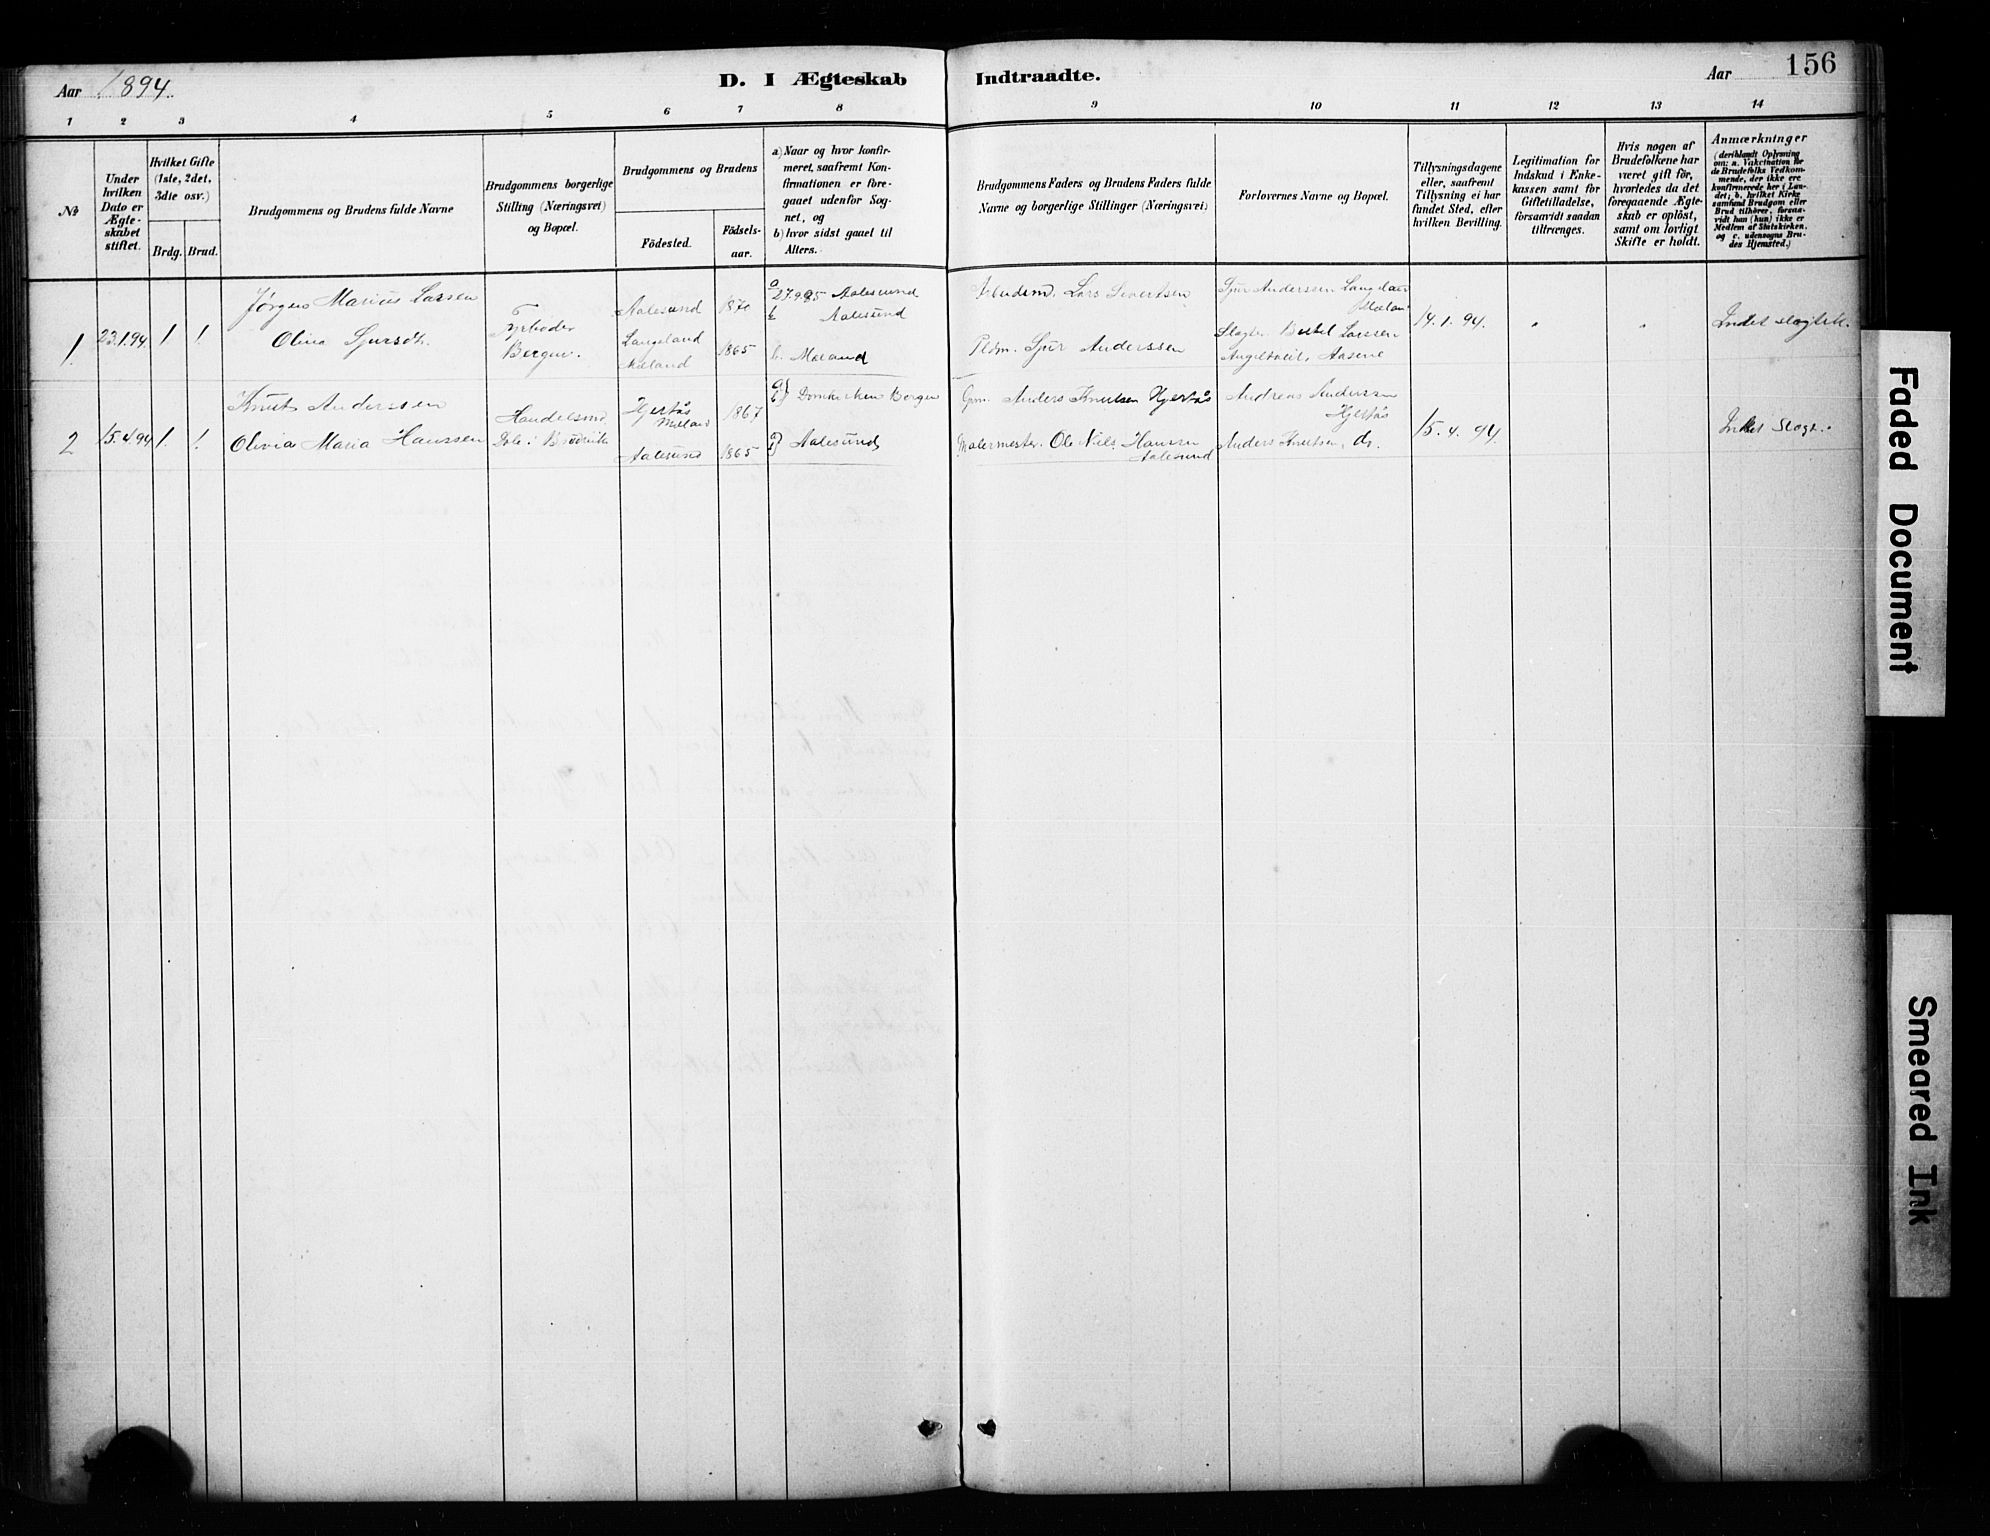 Aar 1894.
D. I Ægteskab Indtraadte.
Aar 156
1 2 3 4 5 6 7 8 9 10 11 12 13 14
№
Under
hvilken
Dato er
Ægte-
skabet
stiftet.
Hvilket Gifte
(1ste, 2det,
3die osv.)
Brdg. Brud.
Brudgommens og Brudens fulde Navne
Brudgommens borgerlige
Stilling (Næringsvei)
og Bopæl.
Brudgommens og Brudens
Födested.
Födsels-
aar.
a) Naar og hvor konfir-
meret, saafremt Kon-
firmationen er fore-
gaaet udenfor Sog-
net, og
b) hvor sidst gaaet til
Alters.
Brudgommens Faders og Brudens Faders fulde
Navne og borgerlige Stillinger (Næringsvei)
Forlovernes Navne og Bopæl.
Tillysningsdagene
eller, saafremt
Tillysning ei har
fundet Sted, efter
hvilken Bevilling.
Legitimation for
Indskud i Enke-
kassen samt for
Giftetilladelse,
forsaavidt saadan
tiltrænges.
Hvis nogen af
Brudefolkene har
været gift för,
hvorledes da det
foregaaende Ægte-
skab er oplöst,
samt om lovligt
Skifte er holdt.
Anmærkninger
(deriblandt Oplysning
om: a. Vakcination for
de Brudefolks Vedkom-
mende, der ikke ere
konfirmerede her i Lan-
det; b. hvilket Kirke
samfund Brudgom eller
Brud tilhörer, forsaa-
vidt han (hun) ikke er
Medlem af Statskirken,
og c. udensogns Bru-
des Hjemsted.)
1 23.1.94. 1 1
Jørgen Marius Larsen
Olina Sjursdt.
Fyrbøder
Bergen.
Aalesund 1870
Langeland
Mæland 1865
a 27.9.85 Aalesund
b Aalesund
b. Mæland
Arbeidsm. Lars Sivertsen
Pldm. Sjur Anderssen
Sjur Anderssen Langeland
Mæland
Slagter Bertel Larssen
14.1.94. " "
2 15.4.94 1. 1.
Knut Anderssen
Olivia Maria Hanssen
Handelsmd.
Hjertås
Mæland 1867
Aalesund 1865
a) Domkirken Bergen
a) Aalesund
Gm. Anders Knutsen Hjertås
Malermester Ole Niels Hanssen
Aalesund
Andreas Andersen
Hjertås
Anders Knutsen, do.
15.4.94.
Faded Document
Smeared Ink